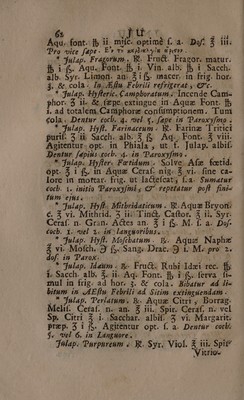 62 J U
Aqu. font. ℔ ii misc. optimè s. a. Dos. ℥ iii.
Pro vice sæpe.
* Julap. Fragorum. ℞. Fruct. Fragor. matur.
℔ i ß. Aqu. Font. ℔ i. Vin. alb. ℔ i Sacch.
alb. Syr. Limon. an. ℥ i ß macer. in frig. hor.
3. & cola. In Æstu Febrili refrigerat, &c.
* Julap. Hysteric. Camphoratum. Incende Cam-
phor. ℥ ii. & sæpe extingue in Aquæ Font. ℔
i. ad totalem Camphoræ consumptionem. Tum
cola. Dentur coch. 4. vel 5. sæpe in Paroxysmo.
* Julap. Hyst. Farinaceum. ℞. Farinæ Tritici
puriss. ℥ ii Sacch. alb. ℥ ß. Aq. Font. ℥ viii.
Agitentur opt. in Phiala, ut s. Julap. albiss.
Dentur sæpius coch. 4. in Paroxysmo.
* Julap. Hyster. Fœtidum. Solve Asæ fœtid.
opt. ℥ i ß. in Aquæ Ceras. nig. ℥ vi. sine ca-
lore in mortar. frig. ut lactescat, s. a. Sumatur
coch. 1. initio Paroxysmi, & repetatur post fini-
tum ejus.
* Julap. Hyst. Mithridaticum. ℞. Aquæ Bryon.
c. ℥ vi. Mithrid. ℥ ii. Tinct. Castor. ℥ ii. Syr.
Ceras. n. Gran. Actes an. ℥ i ß. M. s. a. Dos.
coch. 1. vel 2. in languoribus.
* Julap. Hyst. Moschatum. ℞. Aquæ Naphæ
℥ vi. Mosch. ℈ ß. Sang. Drac. ℈ i. M. pro 2.
dos. in Parox.
* Julap. Idæum. ℞. Fruct. Rubi Idæi rec. ℔
i. Sacch. alb. ℥ ii. Aq. Font. ℔ i ß. serva si-
mul in frig. ad hor. 3. & cola. Bibatur ad li-
bitum in Æstu Febrili ad Sitim extinguendam.
* Julap. Perlatum. ℞. Aquæ Citri, Borrag.
Meliss. Ceras. n. an. ℥ iii. Spir. Ceras. n. vel
Sp. Citri ℥ i. Sacchar. albiss. ℥ vi. Margarit.
præp. ℥ i ß. Agitentur opt. s. a Dentur coch.
5. vel 6. in Languore.
Julap. Purpureum. ℞. Syr. Viol. ℥ iii. Spir.
Vitrio-